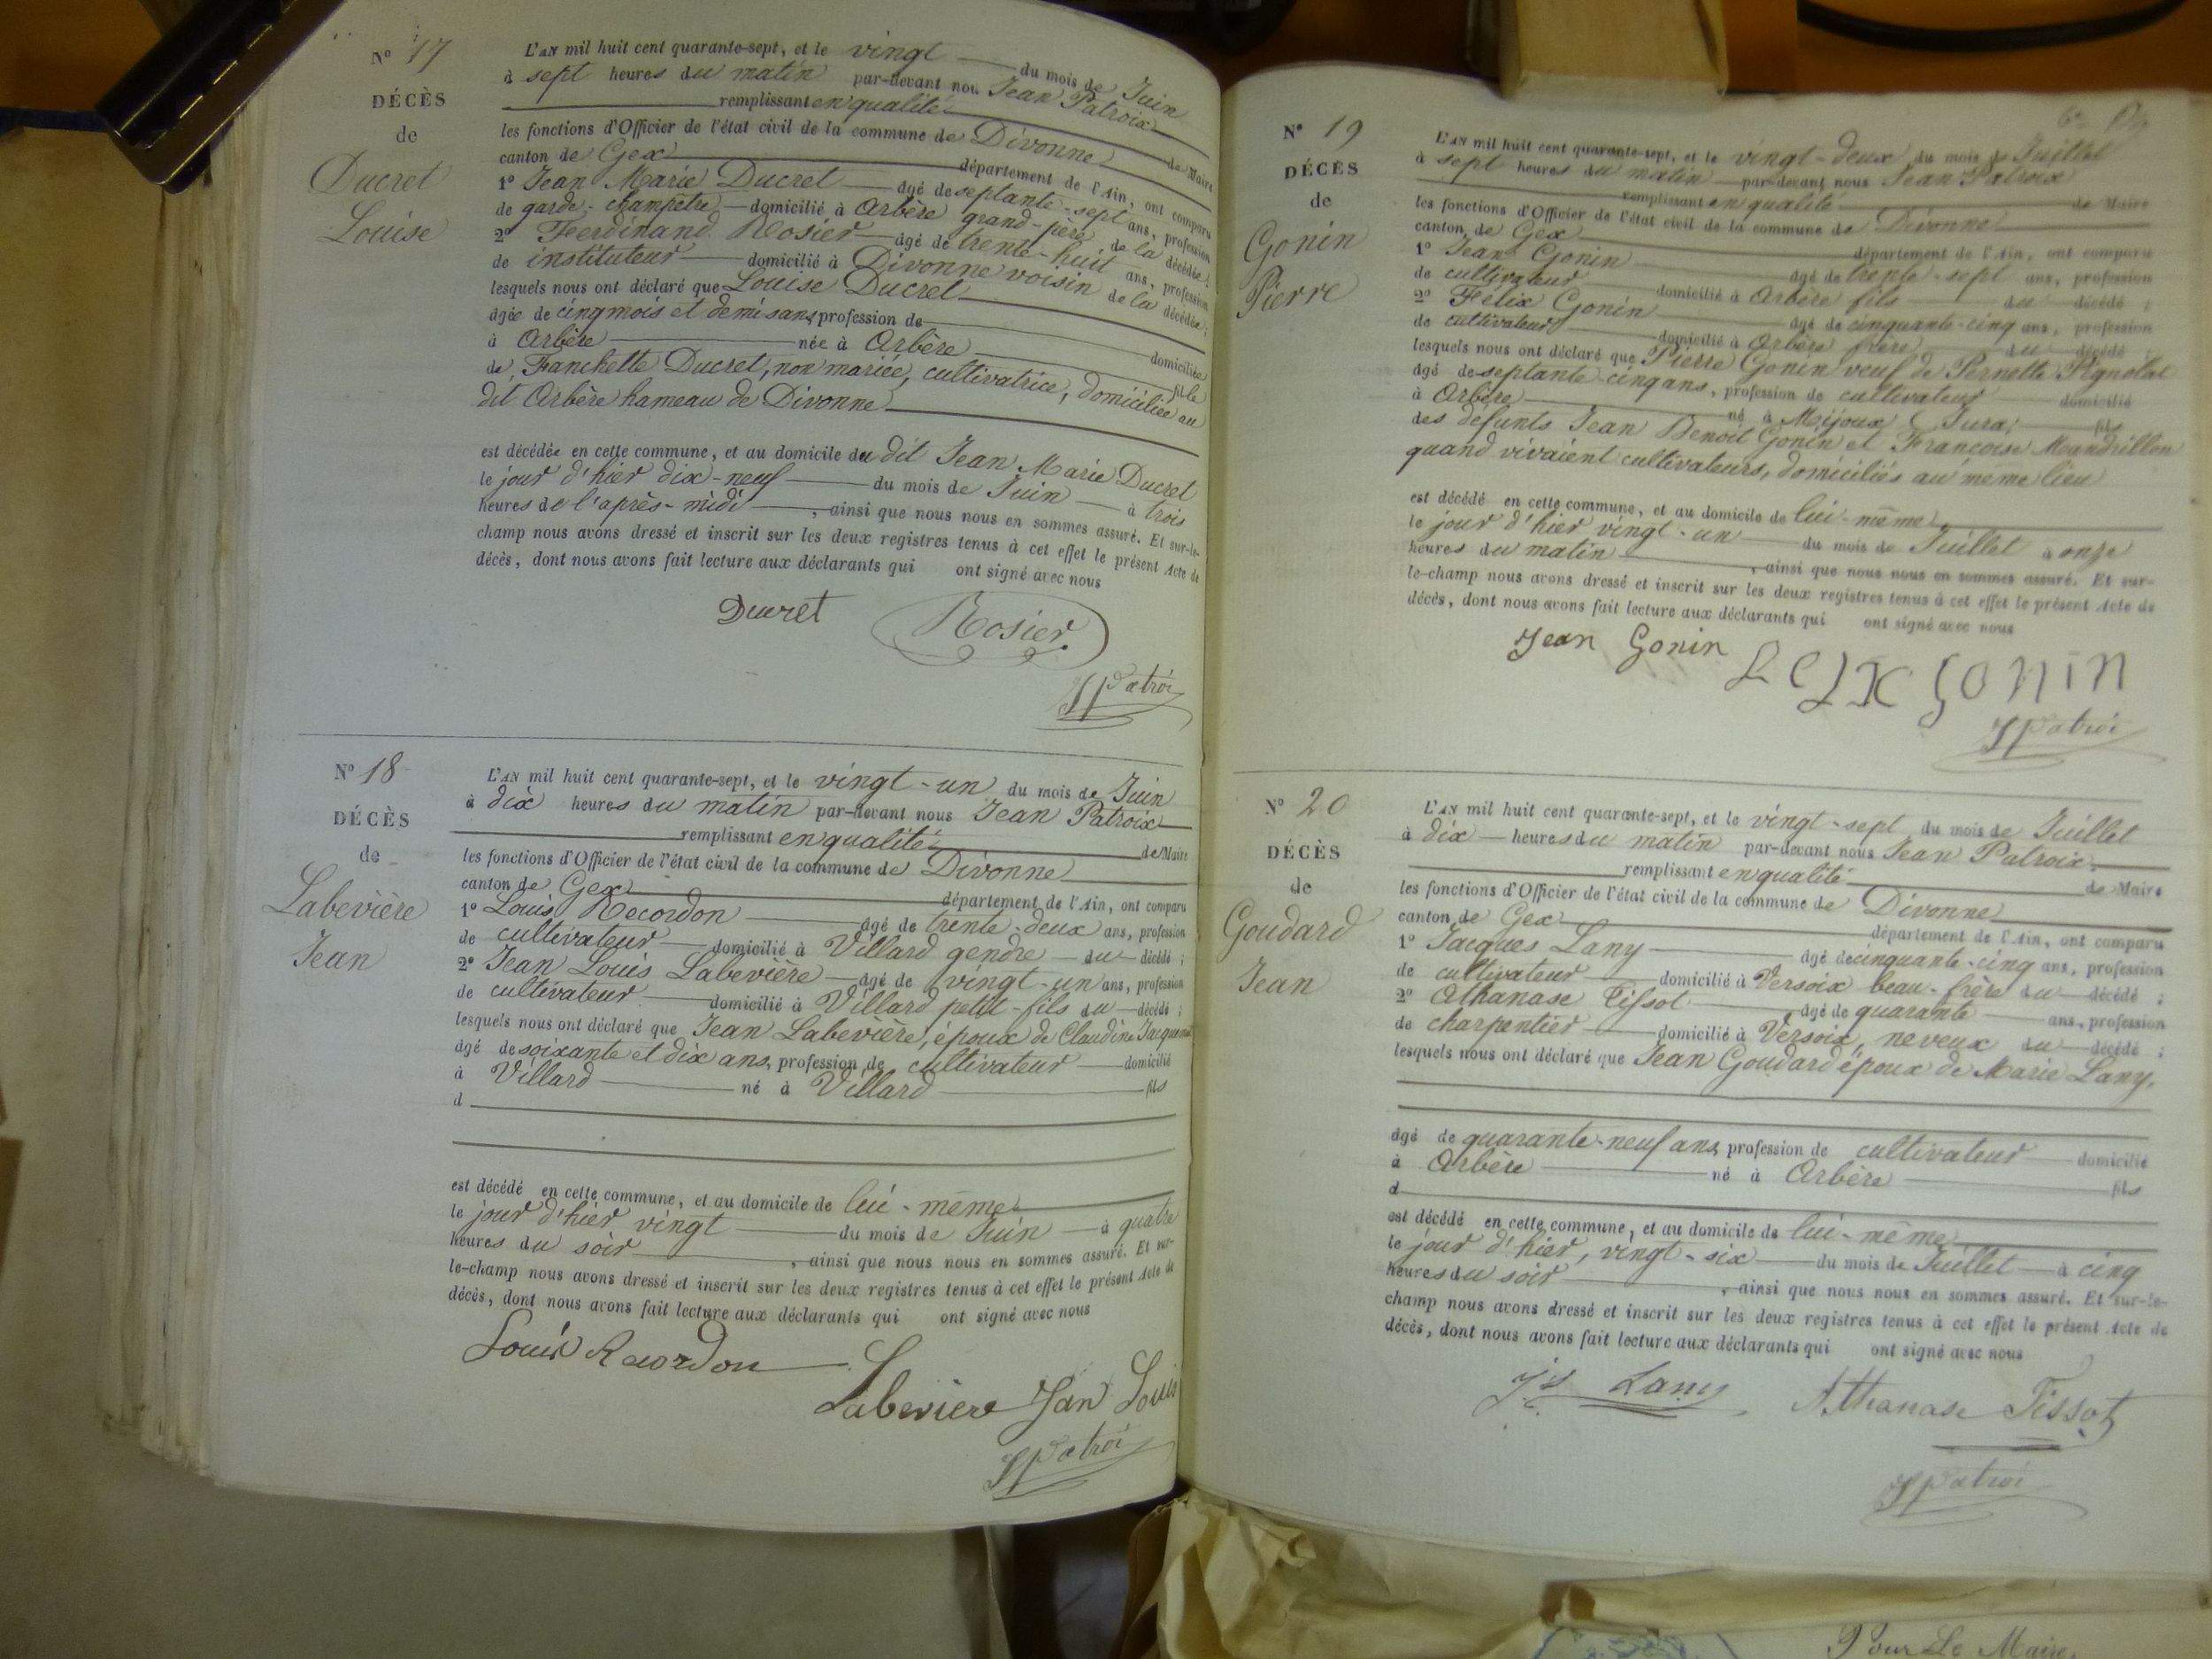 N° 17
DÉCÈS
de
Ducret
Louise
L'AN mil huit cent quarante-sept, et le vingt du mois de Juin
à sept heures du matin par-devant nou Jean Patroix
remplissant en qualité de Maire
les fonctions d'Officier de l'état civil de la commune de Divonne
canton de Gex département de l'Ain, ont comparu
1° Jean Marie Ducret âgé de septante-sept ans, profession
de garde-champêtre domicilié à Arbère grand-père de la décédée;
2° Ferdinand Rosier âgé de trente-huit ans, profession
de instituteur domicilié à Divonne voisin de la décédée;
lesquels nous ont déclaré que Louise Ducret
âgée de cinq mois et demi ans, profession de domiciliée
à Arbère née à Arbère fille
de Franchette Ducret, non mariée, cultivatrice, domiciliée au
dit Arbère hameau de Divonne
est décédée en cette commune, et au domicile du dit Jean Marie Ducret
le jour d'hier dix-neuf du mois de Juin à trois
heures de l'après-midi, ainsi que nous nous en sommes assuré. Et sur-le-
champ nous avons dressé et inscrit sur les deux registres tenus à cet effet le présent Acte de
décès, dont nous avons fait lecture aux déclarants qui ont signé avec nous
Ducret Rosier
JPatroi
N° 18
DÉCÈS
de
Labevière
Jean
L'AN mil huit cent quarante-sept, et le vingt-un du mois de Juin
à dix heures du matin par-devant nous Jean Patroix
remplissant en qualité de Maire
les fonctions d'Officier de l'état civil de la commune de Divonne
canton de Gex département de l'Ain, ont comparu
1° Louis Recordon âgé de trente-deux ans, profession
de cultivateur domicilié à Villard gendre du décédé;
2° Jean Louis Labevière âgé de vingt-un ans, profession
de cultivateur domicilié à Villard petit-fils du décédé;
lesquels nous ont déclaré que Jean Labevière, époux de Claudine
âgé de soixante et dix ans, profession de cultivateur domicilié
à Villard né à Villard fils
d
est décédé en cette commune, et au domicile de lui-même
le jour d'hier vingt du mois de Juin à quatre
heures du soir, ainsi que nous nous en sommes assuré. Et sur-
le-champ nous avons dressé et inscrit sur les deux registres tenus à cet effet le présent Acte de
décès, dont nous avons fait lecture aux déclarants qui ont signé avec nous
Louis Recordon Labeviere Jan Louis
JPatroi
N° 19
DÉCÈS
de
Gonin
Pierre
L'AN mil huit cent quarante-sept, et le vingt-deux du mois de Juillet
à sept heures du matin par-devant nous Jean Patroix
remplissant en qualité de Maire
les fonctions d'Officier de l'état civil de la commune de Divonne
canton de Gex département de l'Ain, ont comparu
1° Jean Gonin âgé de trente-sept ans, profession
de cultivateur domicilié à Arbère fils du décédé;
2° Félix Gonin âgé de cinquante-cinq ans, profession
de cultivateur domicilié à Arbère frère du décédé
lesquels nous ont déclaré que Pierre Gonin veuf de Pernette Pignolat
âgé de septante cinq ans, profession de cultivateur domicilié
à Arbère né à Mijoux (Jura) fils
des défunts Jean Benoit Gonin et Françoise Mandrillon
quand vivaient cultivateurs, domiciliés au même lieu
est décédé en cette commune, et au domicile de lui-même
le jour d'hier vingt-un du mois de Juillet à onze
heures du matin, ainsi que nous nous en sommes assuré. Et sur-
le-champ nous avons dressé et inscrit sur les deux registres tenus à cet effet le présent Acte de
décès, dont nous avons fait lecture aux déclarants qui ont signé avec nous
Jean Gonin FELIX GONIN
JPatroi
N° 20
DÉCÈS
de
Goudard
Jean
L'AN mil huit cent quarante-sept, et le vingt-sept du mois de Juillet
à dix heures du matin par-devant nous Jean Patroix
remplissant en qualité de Maire
les fonctions d'Officier de l'état civil de la commune de Divonne
canton de Gex département de l'Ain, ont comparu
1° Jacques Lany âgé de cinquante-cinq ans, profession
de cultivateur domicilié à Versoix beau-frère du décédé;
2° Athanase Tissot âgé de quarante ans, profession
de charpentier domicilié à Versoix, neveux du décédé;
lesquels nous ont déclaré que Jean Goudard époux de Marie Lany,
âgé de quarante-neuf ans, profession de cultivateur domicilié
à Arbère né à Arbère fils
d
est décédé en cette commune, et au domicile de lui-même
le jour d'hier, vingt-six du mois de Juillet à cinq
heures du soir, ainsi que nous nous en sommes assuré. Et sur-le-
champ nous avons dressé et inscrit sur les deux registres tenus à cet effet le présent Acte de
décès, dont nous avons fait lecture aux déclarants qui ont signé avec nous
Js Lany Athanase Tissot
JPatroi
Pour Le Maire,